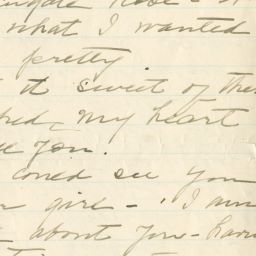 what I wanted
pretty
it sweet of the
my heart
you.
could see you
girl - I am
about you -